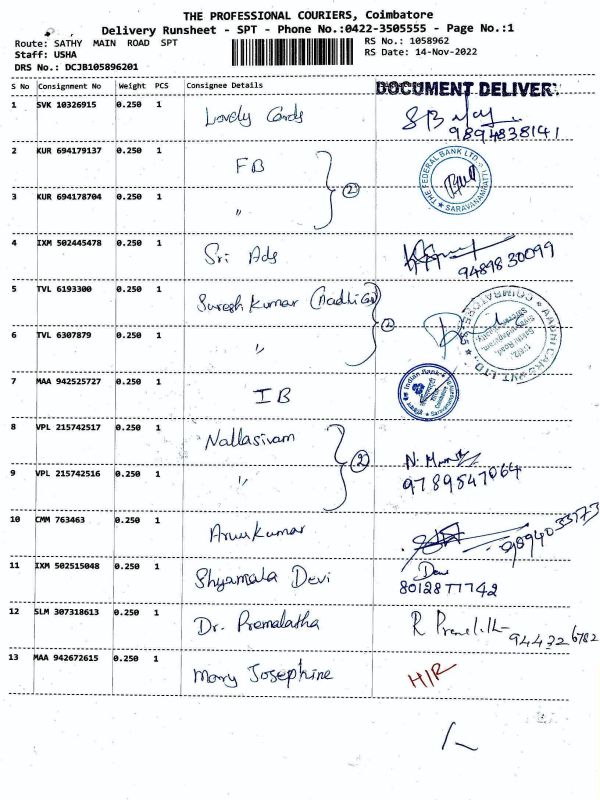 THE PROFESSIONAL COURIERS, Coimbatore
Delivery Runsheet - SPT - Phone No.:0422-3505555 - Page No.:1
Route: SATHY MAIN ROAD SPT
RS No.: 1058962
Staff: USHA
RS Date: 14-Nov-2022
DRS No.: DCJB105896201
S No Consignment No Weight PCS Consignee Details
DOCUMENT DELIVER
1 SVK 10326915 0.250 1 Lovely Cards
9894838141
2 KUR 694179137 0.250 1 FB
THE FEDERAL BANK LTD. SARAVANAMPATTI
2
3 KUR 694178704 0.250 1 "
4 IXM 502445478 0.250 1 Sri Ads
9489830099
5 TVL 6193300 0.250 1 Suresh Kumar
COIMBATORE
2
6 TVL 6307879 0.250 1 "
7 MAA 942525727 0.250 1 IB
Indian Bank
8 VPL 215742517 0.250 1 Nallasivam
2
9 VPL 215742516 0.250 1 "
9789547064
10 CMM 763463 0.250 1 Arunkumar
9894033773
11 IXM 502515048 0.250 1 Shyamala Devi
8012877742
12 SLM 307318613 0.250 1 Dr. Premalatha
9443226782
13 MAA 942672615 0.250 1 Mary Josephine
H/R